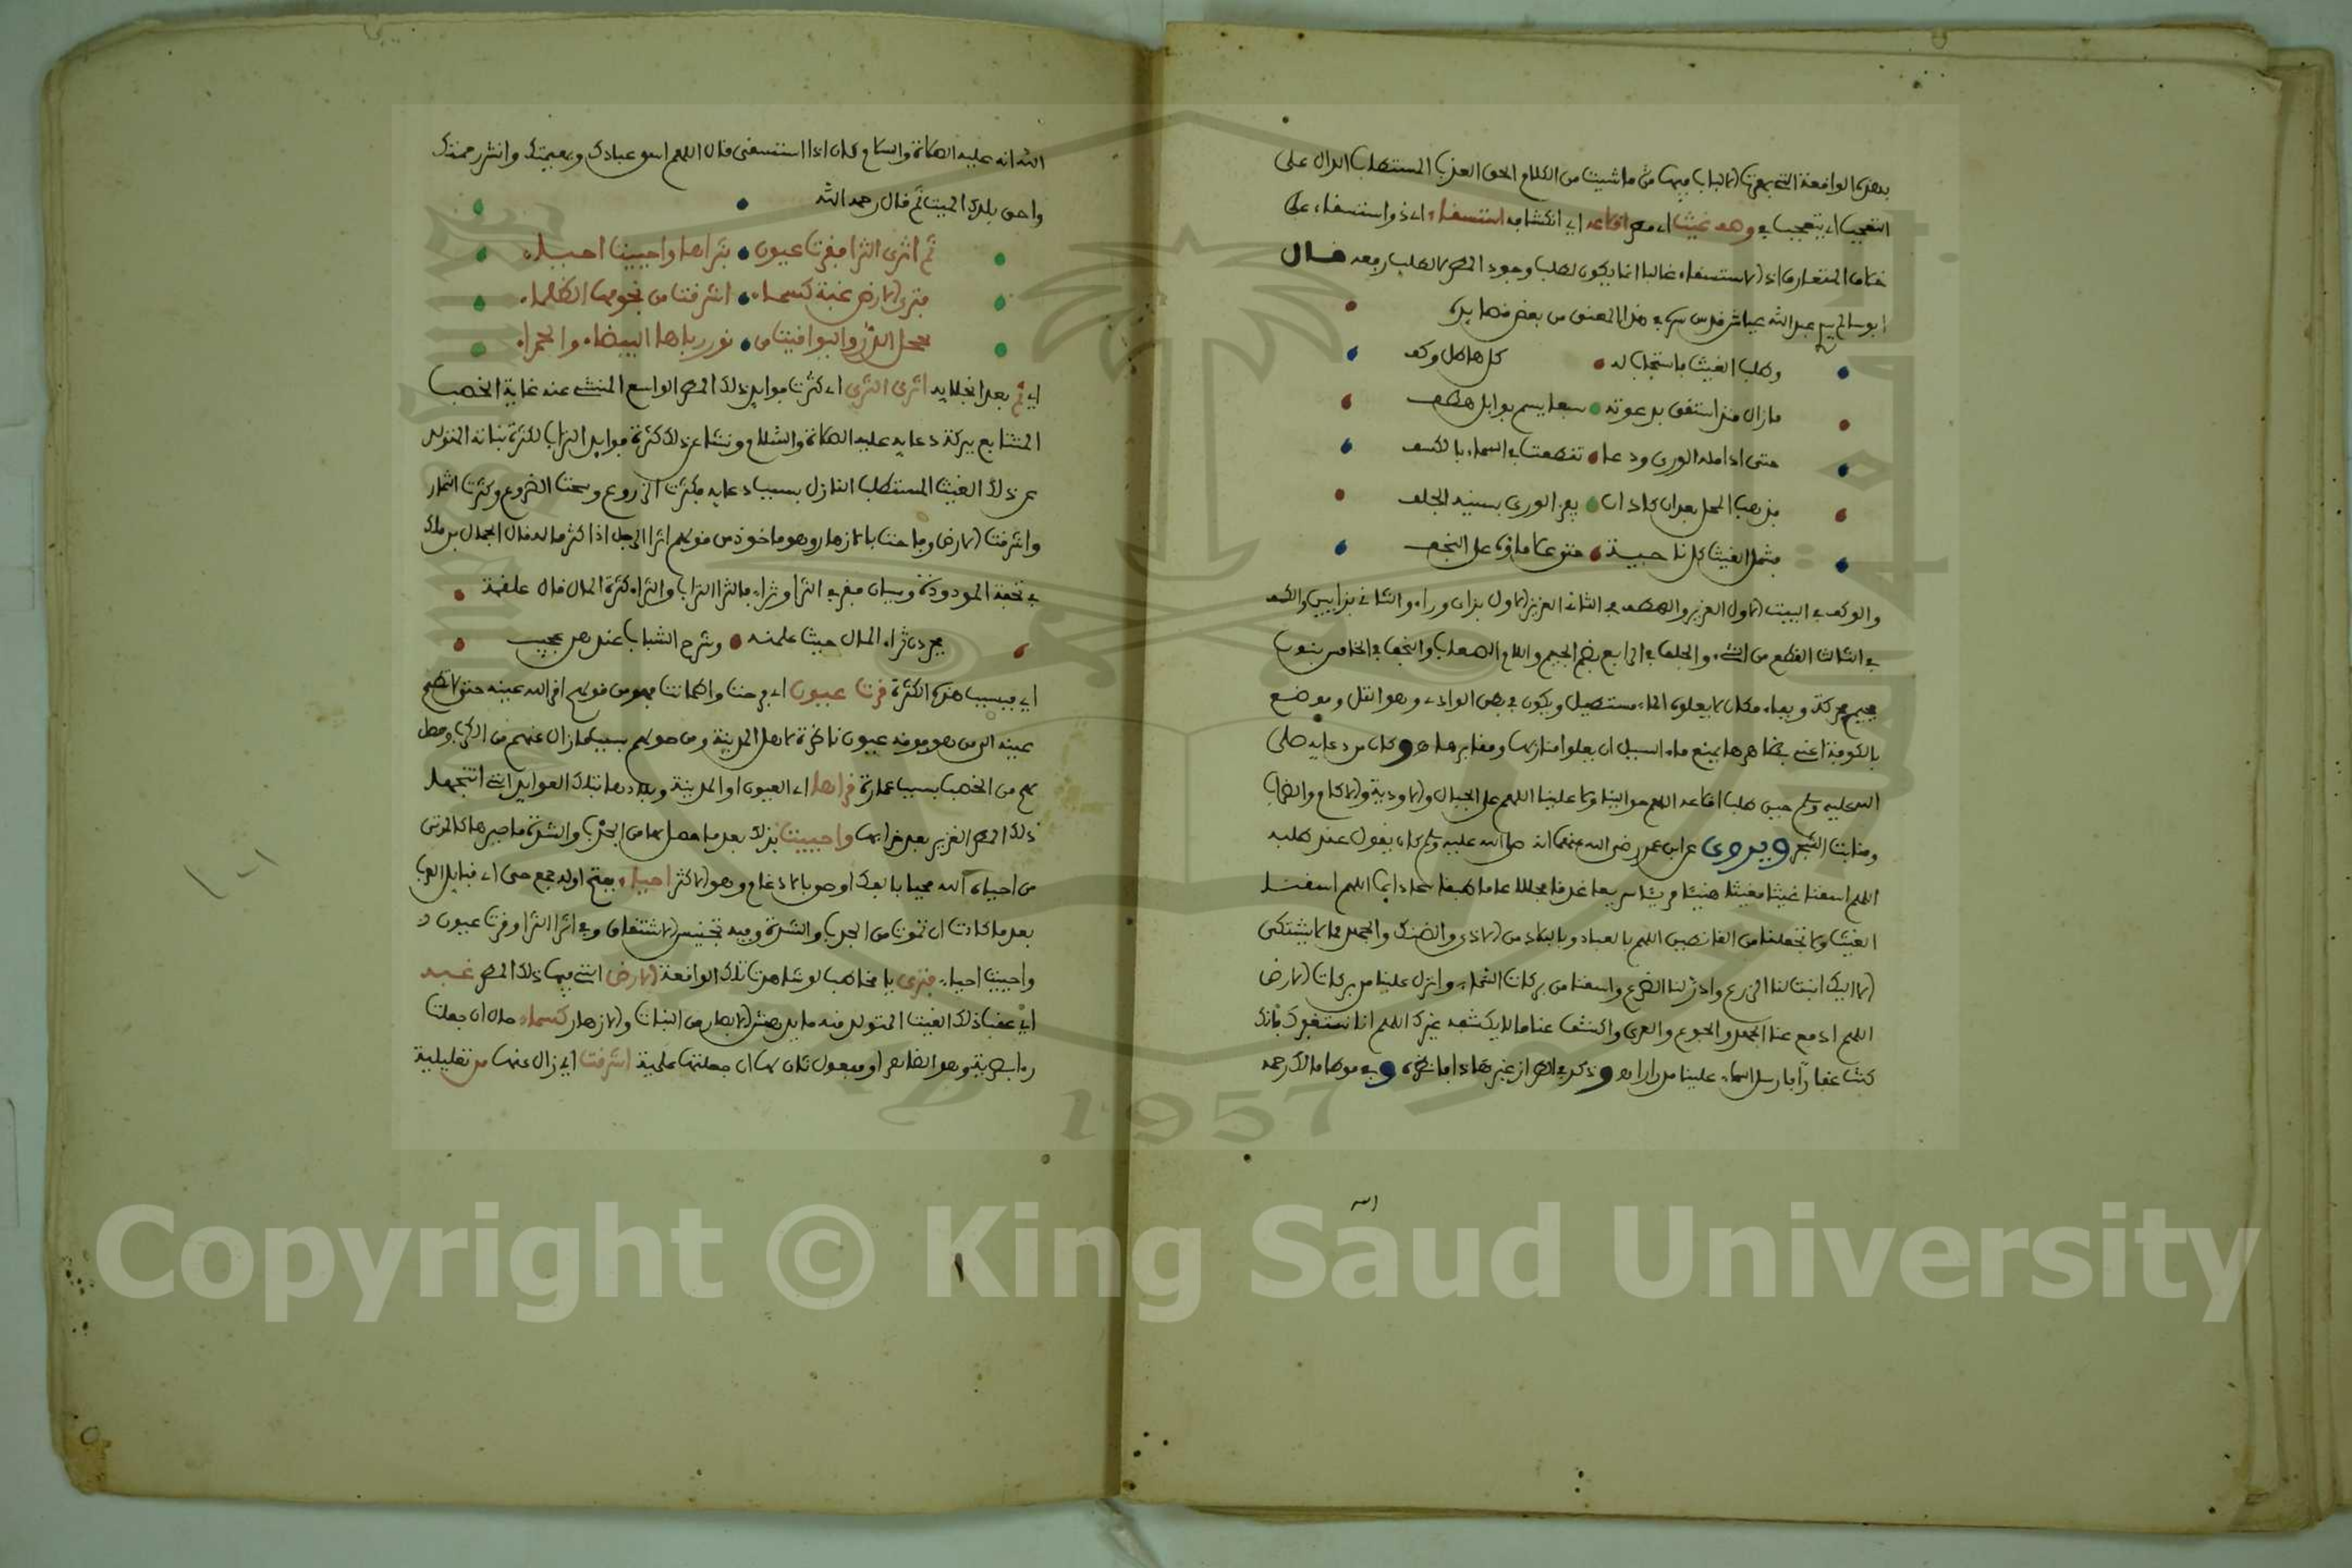 بهذه الواقعة التي بهرت الالباب فيها من ما شيت من الكلام الحق العذب المستطاب الدال على
التعجب اي يتعجب في وهو غيث اي مطر اقلاعه اي انكشافه استسقاء اي ذو استسقاء على
خلاف المتعارف اذ الاستسقاء غالبا انما يكون لطلب وجود المطر لا لطلب رفعه قال
ابو سالم سيدي عبد الله عياش قدس سره في هذا المعنى من بعض قصايده
وطلب الغيث فاستجاب له كل هاطل وكف
ما زال منذ استقى بدعوته سبعا يسح بوابل هطف
حتى اذا مله الورى ودعا تقطعت في السماء بالكسف
فذهب المحل بعد ان كاد ان يفر الورى بسنيه الجلف
فشمل الغيث كل ناحية حتى علا ماؤه على النجف
والوكف في البيت الاول الغزير والهطف في الثاني الغزير الاول بزاي وراء والثاني بزايين والكسف
في الثالث القطع من الشيء والجلف في الرابع بضم الجيم واللام الصعاب والنجف في الخامس بنون
فجيم محركة وبفاء مكان لا يعلوه الماء مستطيل ويكون في بطن الوادي وهو التل وموضع
بالكوفة اعني بظاهرها يمنع ماء السيل ان يعلو منازلها ومقابرها هـ وكان من دعايه صلى
الله عليه وسلم حين طلب اقلاعه اللهم حوالينا ولا علينا اللهم على الجبال والاودية والاكام والظراب
ومنابت الشجر ويروى عن ابن عمر رضي الله عنهما انه صلى الله عليه وسلم كان يقول عند طلبه
اللهم اسقنا غيثا مغيثا هنيئا مريئا سريعا غدقا مجللا عاما طبقا سحا دايما اللهم اسقنا
الغيث ولا تجعلنا من القانطين اللهم بالعباد وبالبلاد من الاذى والضنك والجهد ما لا يشتكى
الا اليك انبت لنا الزرع وادر لنا الضرع واسقنا من بركات السماء وانزل علينا من بركات الارض
اللهم ارفع عنا الجهد والجوع والعرى واكشف عنا ما لا يكشفه غيرك اللهم انا نستغفرك فانك
كنت غفارا فارسل السماء علينا مدرارا هـ وذكر في الطراز غير هذا فانظره وفي موطا مالك رحمه
الله
الله انه عليه الصلاة والسلام كان اذا استسقى قال اللهم اسق عبادك وبهيمتك وانشر رحمتك
واحي بلدك الميت ثم قال رحمه الله
ثم اثرى الثرا فقرت عيون بقراها واحييت احياء
فترى الارض غبه كسماء اشرقت من نجومها الظلماء
تخجل الدر واليواقيت من نور رباها البيضاء والحمراء
اي ثم بعد انجلايه اثرى الثرى اي كثرت فوايد ذلك المطر الواسع المنشي عنه غاية الخصب
المتتابع ببركة دعايه عليه الصلاة والسلام ونشا عن ذلك كثرة فوايد التراب لكثرة نباته المتولد
عن ذلك الغيث المستطاب النازل بسبب دعايه فكثرت الزروع وسحت الضروع وكثرت الثمار
واشرقت الارض وفاحت بالازهار وهو ماخوذ من قولهم اثرا الرجل اذا كثر ماله قال الجمال بن ملك
في تحفة المودود في وبيان مغرب الثرا وثراء فالثرا التراب والثراء كثرة المال قال علقمة
يردن ثراء المال حيث علمنه وشرخ الشباب عندهن عجيب
اي فبسبب هذه الكثرة قرت عيون اي فرحت واطمانت فهو من قولهم اقر الله عينه حتى لا تطمح
عينه الى من هو فوقه عيون ناظرة لاهل المدينة ومن حولهم بسبب ما زال عنهم من الكرب وحصل
لهم من الخصب بسبب عمارة قراها اي العيون او المدينة وبلادها بتلك الفوايد التي انتجها
ذلك المطر الغزير بعد خرابها واحييت بذلك بعد ما حصل لها من الجدب والشدة ما صيرها كالموتى
من احياه الله فحيا بالفك او حي بالادغام وهو الاكثر احياء بفتح اوله جمع حي اي قبايل العرب
بعد ما كادت ان تموت من الجدب والشدة وفيه تجنيس الاشتقاق وفي اثرا الثرا وقرت عيون و
واحييت احياء فترى يا مخاطب لو شاهدت تلك الواقعة الارض التي فيها ذلك المطر غبه
اي عقب ذلك الغيث المتولد منه ما يدهش الابصار من النبات والازهار كسماء حال ان جعلت
راى بصرية وهو الظاهر او مفعول ثان لها ان جعلتها علمية اشرقت اي زال عنها من تعليلية